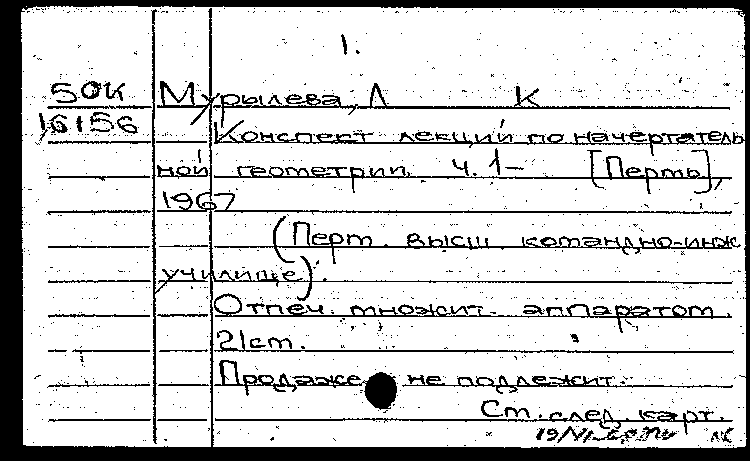 1.
50К Мурылева, Л К
16156 Конспект лекций по начертатель
ной геометрии. Ч. 1– [Пермь],
1967
(Перт. высш. командно-инж
училище).
Отпеч. множит. аппаратом.
21см.
Продаже не подлежит.
См. след. карт.
19/VI